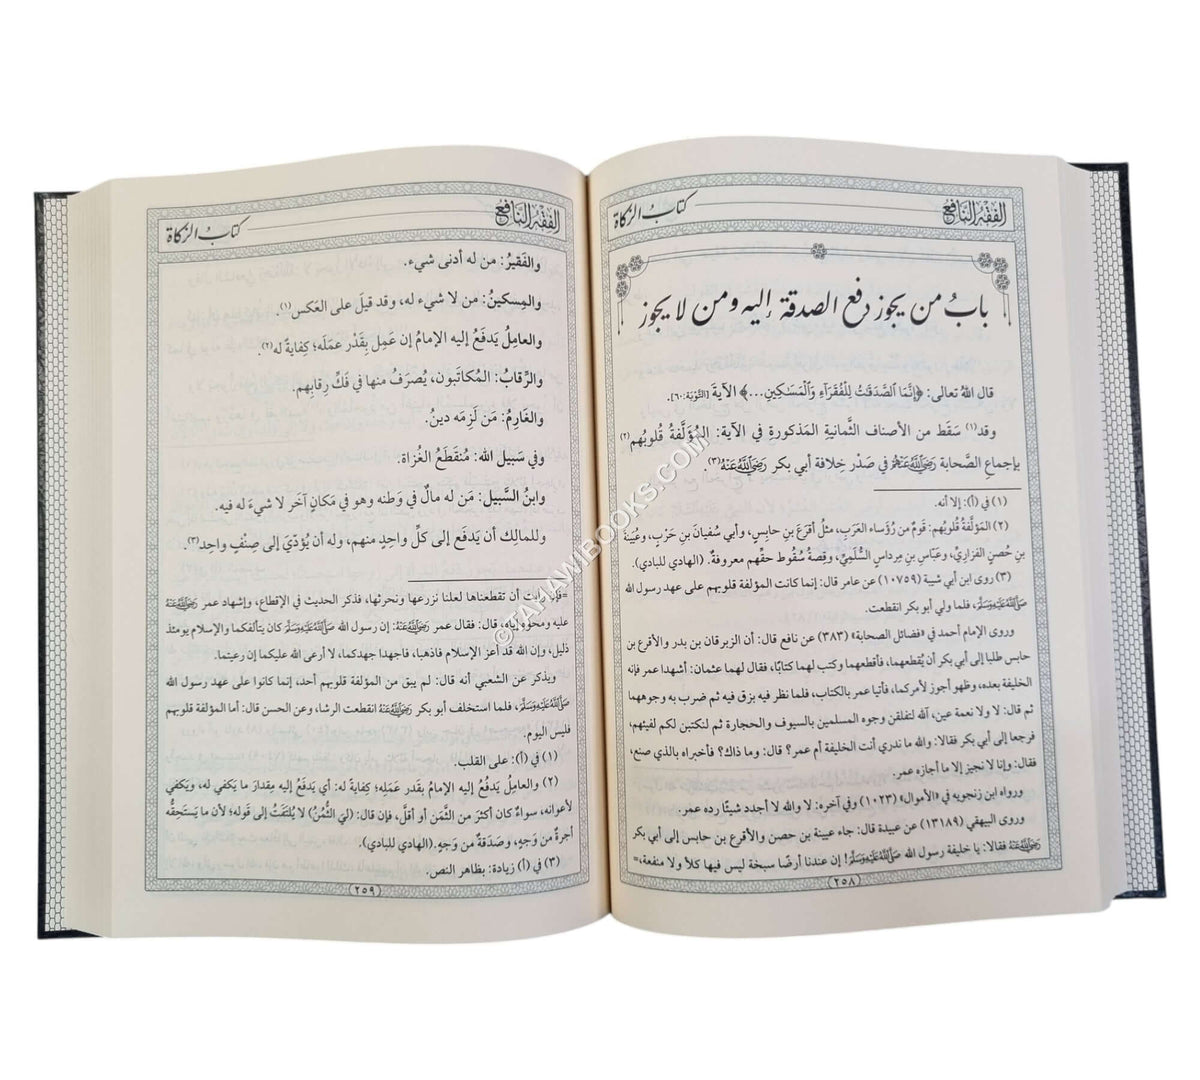 الفقه النافع
كتاب الزكاة
باب من يجوز دفع الصدقة إليه ومن لا يجوز
قال اللهُ تعالى: ﴿إِنَّمَا ٱلصَّدَقَٰتُ لِلْفُقَرَآءِ وَٱلْمَسَٰكِينِ...﴾ الآية [التَّوْبَة: ٦٠].
وقد(١) سَقَط من الأصناف الثَّمانيةِ المَذكورةِ في الآية: المُؤَلَّفةُ قُلوبُهم(٢)
بإجماعِ الصَّحابة رَضِيَ اللَّهُ عَنْهُمْ في صَدْر خِلافة أبي بكر رَضِيَ اللَّهُ عَنْهُ(٣).
(١) في (أ): إلا أنه.
(٢) المؤلَّفةُ قُلوبُهم: قومٌ من رُؤساء العَرَب، مثلُ أقرَعَ بنِ حابِس، وأبي سُفيانَ بنِ حَرْب، وعُيَينَةَ
بنِ حُصنٍ الفَزاريِّ، وعَبّاسِ بنِ مِرداسٍ السُّلَميِّ، وقِصةُ سُقُوط حقِّهم معروفةٌ. (الهادي للبادي).
(٣) روى ابن أبي شيبة (١٠٧٥٩) عن عامر قال: إنما كانت المؤلفة قلوبهم على عهد رسول الله
صَلَّى اللَّهُ عَلَيْهِ وَسَلَّمَ، فلما ولي أبو بكر انقطعت.
وروى الإمام أحمد في «فضائل الصحابة» (٣٨٣) عن نافع قال: أن الزبرقان بن بدر والأقرع بن
حابس طلبا إلى أبي بكر أن يُقطعهما، فأقطعهما وكتب لهما كتابًا، فقال لهما عثمان: أشهدا عمر فإنه
الخليفة بعده، وظهو أجوز لأمركما، فأتيا عمر بالكتاب، فلما نظر فيه بزق فيه ثم ضرب به وجوههما
ثم قال: لا ولا نعمة عين، آلله لتفلقن وجوه المسلمين بالسيوف والحجارة ثم لنكتبن لكم لفيئهم،
فرجعا إلى أبي بكر فقالا: والله ما ندري أنت الخليفة أم عمر؟ قال: وما ذاك؟ فأخبراه بالذي صنع،
فقال: وإنا لا نجيز إلا ما أجازه عمر.
ورواه ابن زنجويه في «الأموال» (١٠٢٣) وفي آخره: لا والله لا أجدد شيئًا رده عمر.
وروى البيهقي (١٣١٨٩) عن عبيدة قال: جاء عيينة بن حصن والأقرع بن حابس إلى أبي بكر
رَضِيَ اللَّهُ عَنْهُ فقالا: يا خليفة رسول الله صَلَّى اللَّهُ عَلَيْهِ وَسَلَّمَ! إن عندنا أرضًا سبخة ليس فيها كلأ ولا منفعة،=
٢٥٨
الفقه النافع
كتاب الزكاة
والفَقيرُ: من له أدنى شيء.
والمِسكينُ: من لا شيء له، وقد قيلَ على العَكس(١).
والعامِلُ يَدفَعُ إليه الإمامُ إن عَمِل بِقَدْر عمَلَه؛ كِفايةً له(٢).
والرِّقابُ: المُكاتَبون، يُصرَفُ منها في فَكِّ رِقابِهم.
والغَارِمُ: مَن لَزِمَه دينٌ.
وفي سَبيلِ الله: مُنقَطَعُ الغُزاة.
وابنُ السَّبيل: مَن له مالٌ في وَطَنه وهو في مَكانٍ آخَر لا شيءَ له فيه.
وللمالك أن يَدفَع إلى كلِّ واحِدٍ منهم، وله أن يُؤدّيَ إلى صِنْفٍ واحِد(٣).
=فإن رأيت أن تقطعناها لعلنا نزرعها ونحرثها، فذكر الحديث في الإقطاع، وإشهاد عمر رَضِيَ اللَّهُ عَنْهُ
عليه ومحوه إياه، قال: فقال عمر رَضِيَ اللَّهُ عَنْهُ: إن رسول الله صَلَّى اللَّهُ عَلَيْهِ وَسَلَّمَ كان يتألفكما والإسلام يومئذ
ذليل، وإن الله قد أعز الإسلام فاذهبا، فاجهدا جهدكما، لا أرعى الله عليكما إن رعيتما.
ويذكر عن الشعبي أنه قال: لم يبق من المؤلفة قلوبهم أحد، إنما كانوا على عهد رسول الله
صَلَّى اللَّهُ عَلَيْهِ وَسَلَّمَ، فلما استخلف أبو بكر رَضِيَ اللَّهُ عَنْهُ انقطعت الرشا، وعن الحسن قال: أما المؤلفة قلوبهم
فليس اليوم.
(١) في (أ): على القلب.
(٢) والعامِلُ يَدفَعُ إليه الإمامُ بقدر عمَلِه؛ كِفايةً له: أي يَدفَع إليه مِقدارَ ما يَكفي له، ويَكفي
لأعوانه، سواءٌ كان أكثرَ من الثَّمَن أو أقلَّ، فإن قال: (ليَ الثُّمُنُ) لا يُلتَفَتُ إلى قوله؛ لأن ما يَستَحِقُّه
أجرةٌ من وَجهٍ، وصَدَقةٌ من وَجهٍ. (الهادي للبادي).
(٣) في (أ) زيادة: بظاهر النص.
٢٥٩
© TAHAMIBOOKS.COM